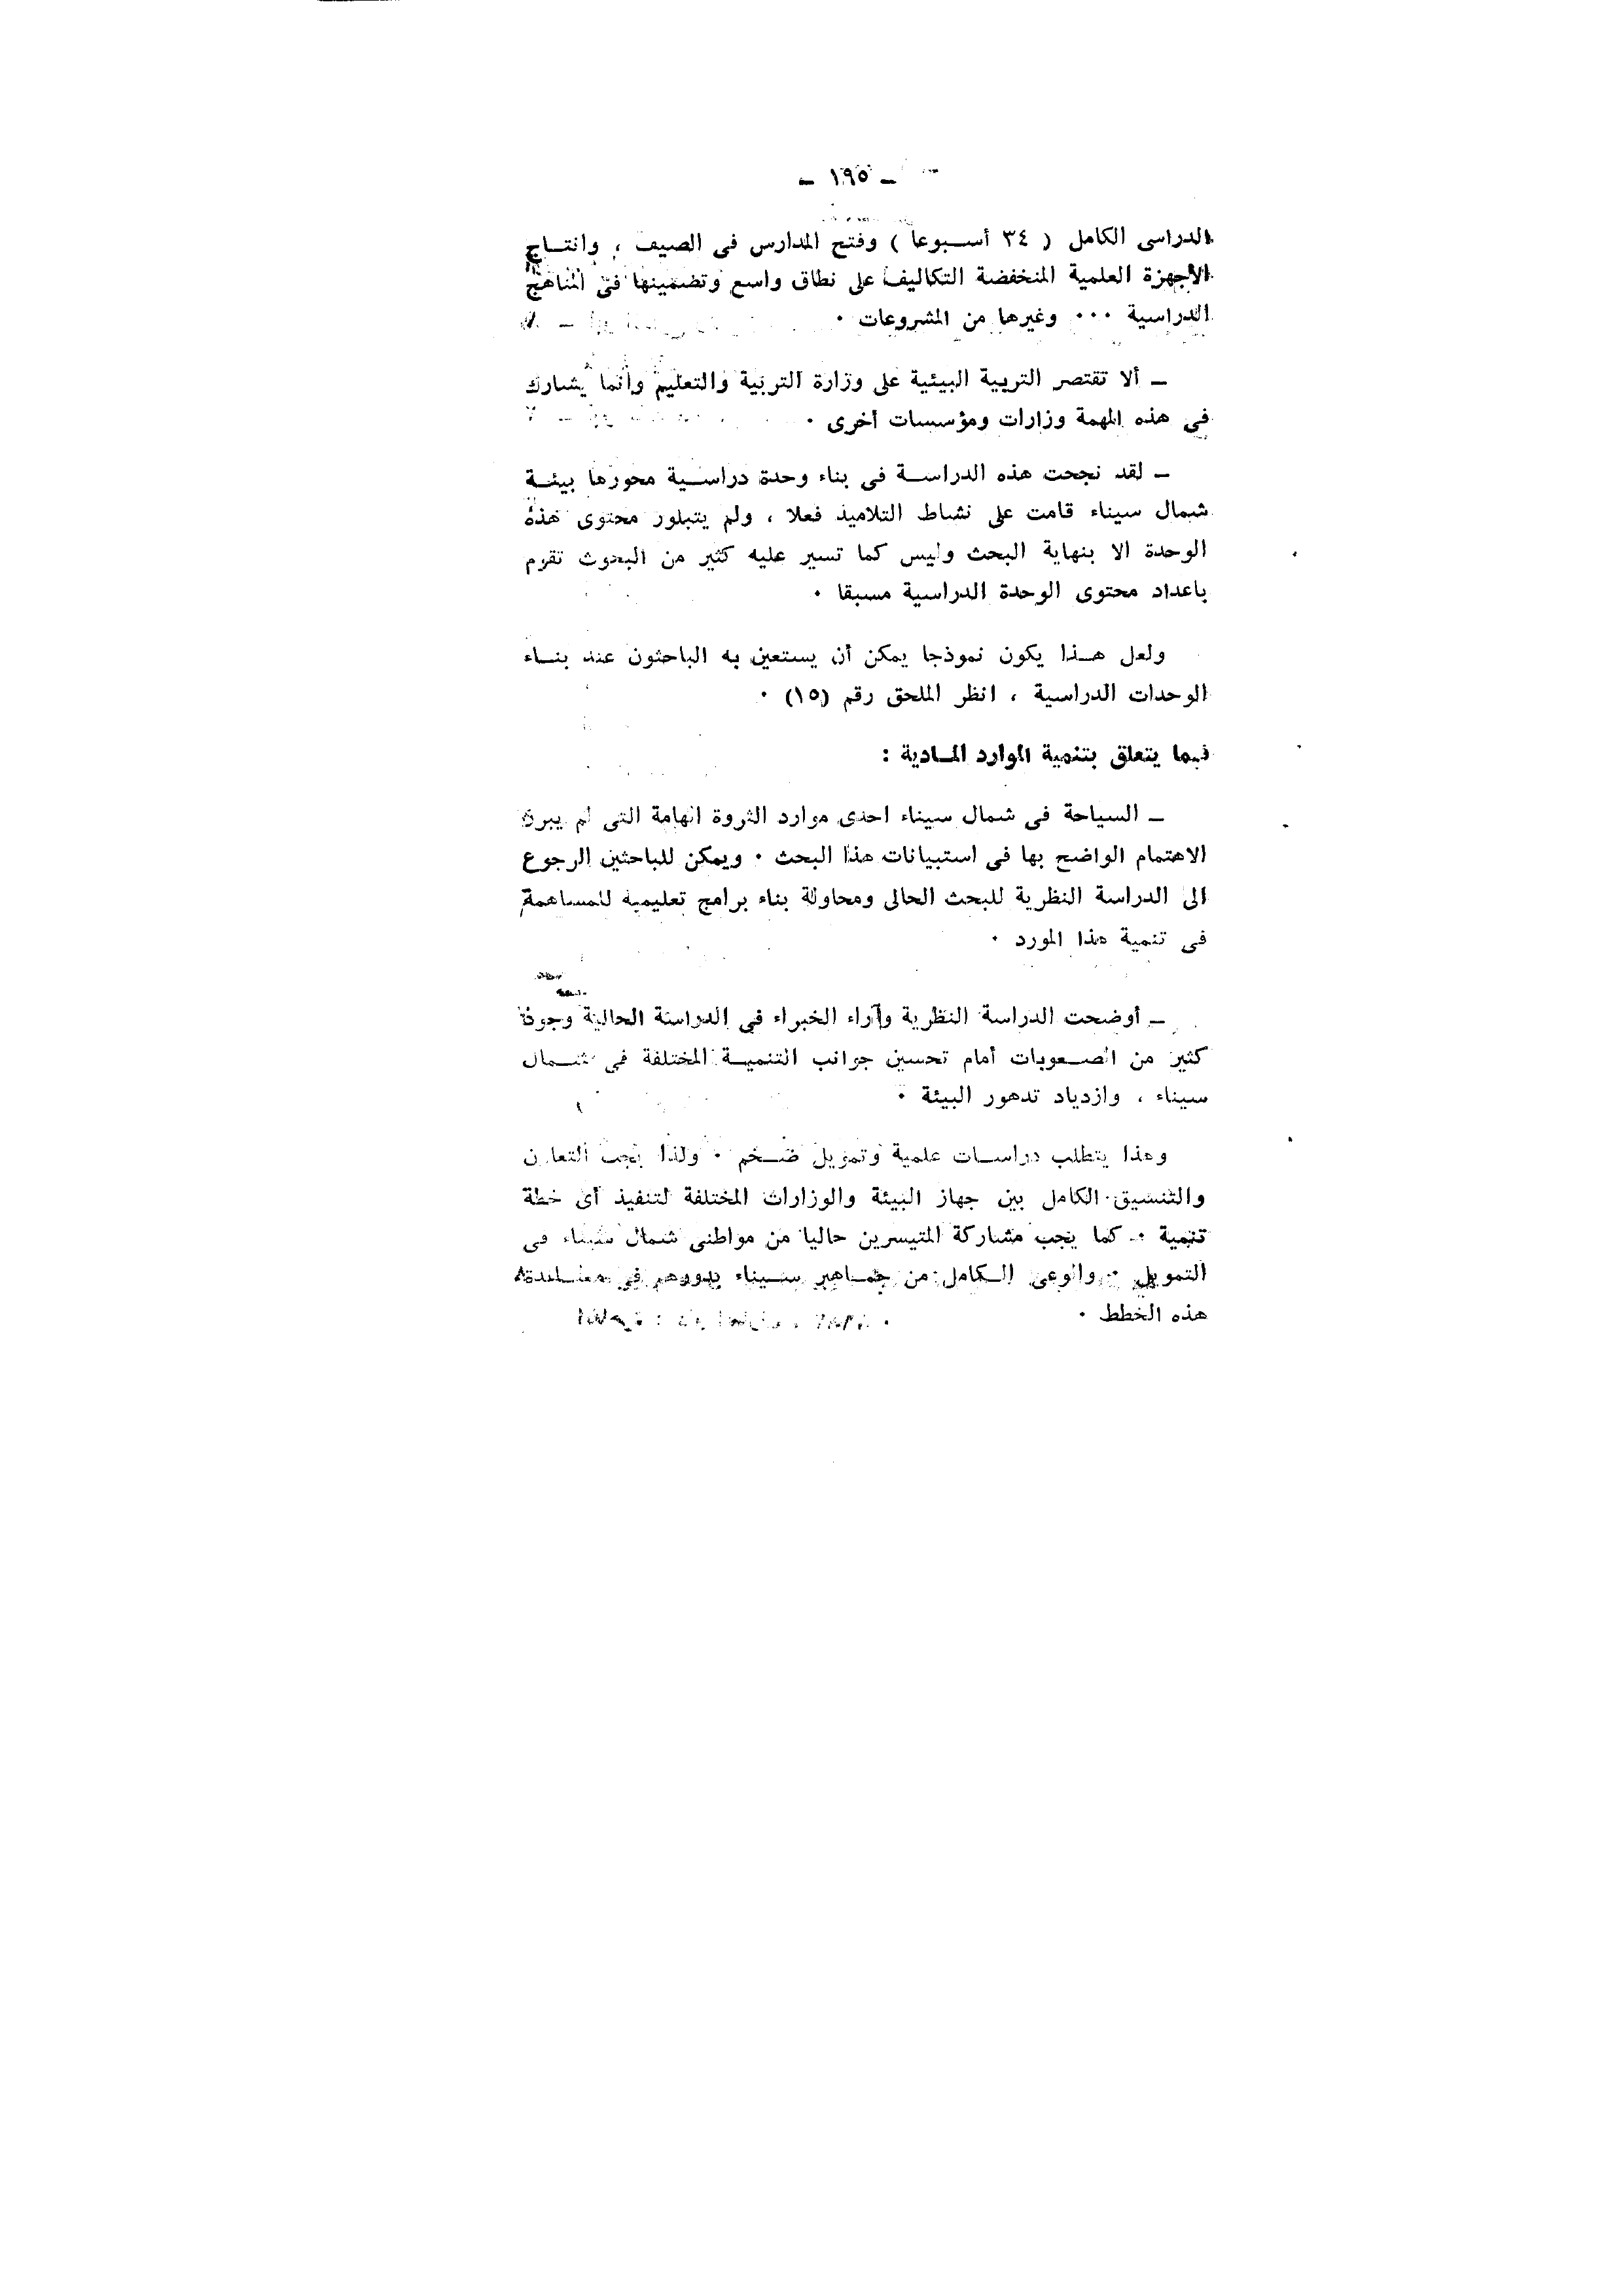 ـ ١٩٥ ـ
الدراسى الكامل ( ٣٤ أسـبوعا ) وفتح المدارس فى الصيف ، وانتـاج
الأجهزة العلمية المنخفضة التكاليف على نطاق واسع وتضمينها فى المناهج
الدراسية ٠٠٠ وغيرها من المشروعات ٠
ـ ألا تقتصر التربية البيئية على وزارة التربية والتعليم وانما يشارك
فى هذه المهمة وزارات ومؤسسات أخرى ٠
ـ لقد نجحت هذه الدراسـة فى بناء وحدة دراسـية محورها بيئـة
شمال سيناء قامت على نشاط التلاميذ فعلا ، ولم يتبلور محتوى هذه
الوحدة الا بنهاية البحث وليس كما تسير عليه كثير من البحوث تقوم
باعداد محتوى الوحدة الدراسية مسبقا ٠
ولعل هـذا يكون نموذجا يمكن أن يستعين به الباحثون عند بنـاء
الوحدات الدراسية ، انظر الملحق رقم (١٥) ٠
فيما يتعلق بتنمية الموارد المـادية :
ـ السياحة فى شمال سيناء احدى موارد الثروة الهامة التى لم يبرز
الاهتمام الواضح بها فى استبيانات هذا البحث ٠ ويمكن للباحثين الرجوع
الى الدراسة النظرية للبحث الحالى ومحاولة بناء برامج تعليمية للمساهمة
فى تنمية هذا المورد ٠
ـ أوضحت الدراسة النظرية وآراء الخبراء فى الدراسة الحالية وجود
كثير من الصـعوبات أمام تحسين جوانب التنميـة المختلفة فى شـمال
سيناء ، وازدياد تدهور البيئة ٠
وهذا يتطلب دراسـات علمية وتمويل ضـخم ٠ ولذا يجب التعاون
والتنسيق الكامل بين جهاز البيئة والوزارات المختلفة لتنفيذ أى خطة
تنمية ٠ كما يجب مشاركة المتيسرين حاليا من مواطنى شمال سيناء فى
التمويل ٠ والوعى الـكامل من جمـاهير سـيناء بدورهم فى
هذه الخطط ٠